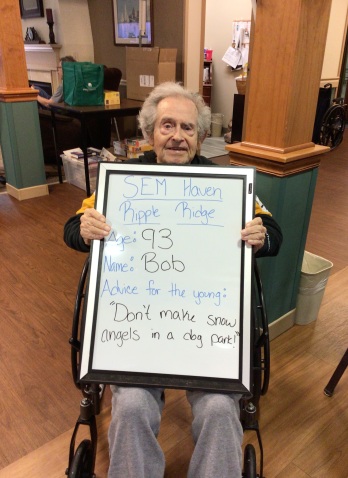 SEM Haven
Ripple Ridge
Age: 93
Name: Bob
Advice for the young:
"Don't make snow
angels in a dog park!"